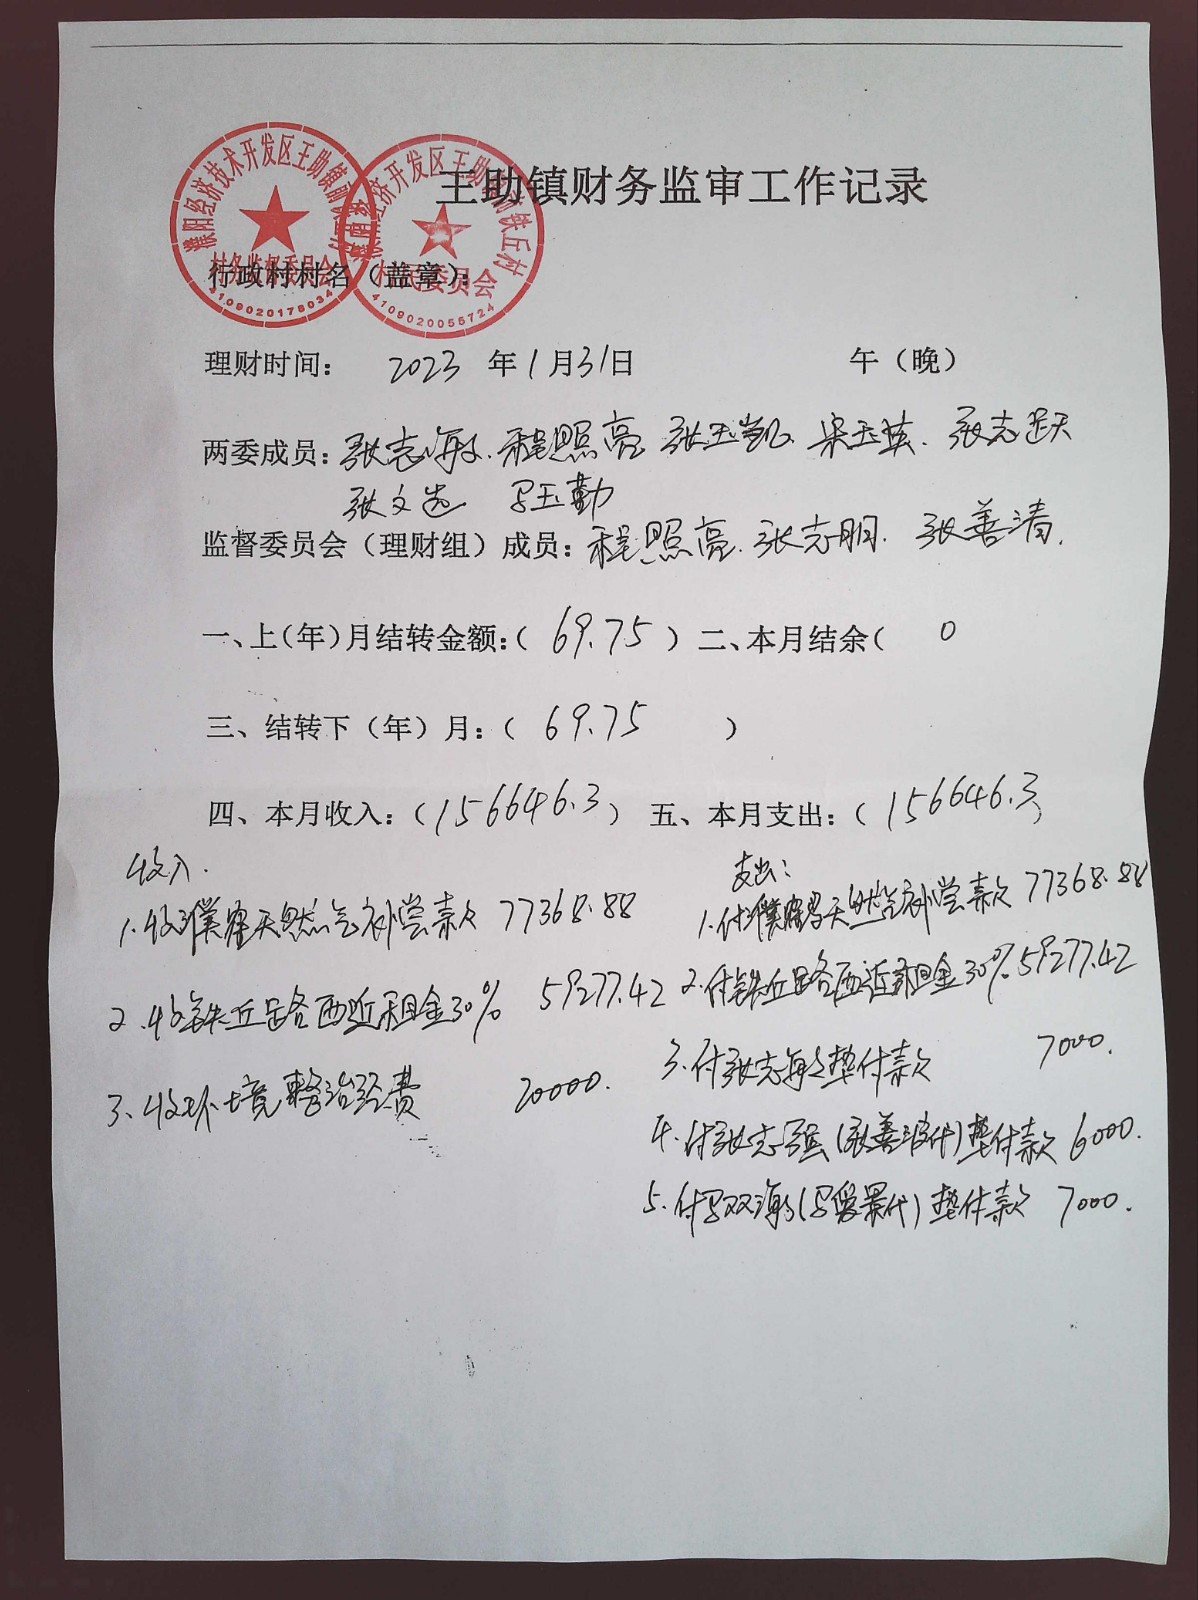 王助镇财务监审工作记录
濮阳经济技术开发区王助镇前铁丘村
村务监督委员会
4109020178034
经济开发区王助镇前铁丘村
村民委员会
4109020055724
行政村村名（盖章）：
理财时间： 2023 年 1 月 31 日 午（晚）
两委成员：张志海. 程照亮 张玉凯. 宋玉英. 张志跃
张文选 马玉勤
监督委员会（理财组）成员：程照亮. 张志朋. 张善清.
一、上(年)月结转金额：( 69.75 ) 二、本月结余( 0
三、结转下（年）月：( 69.75 )
四、本月收入：( 156646.3 ) 五、本月支出：( 156646.3 )
收入.
1.收濮 天然气补偿款 77368.88
2.收铁丘路西 租金30% 59277.42
3.收环境整治经费 20000.
支出：
1.付濮 天然气补偿款 77368.88
2.付铁丘路西 租金30% 59277.42
3.付张志海垫付款 7000.
4.付张志强(张善波代)垫付款 6000.
5.付马双海(马 景代)垫付款 7000.